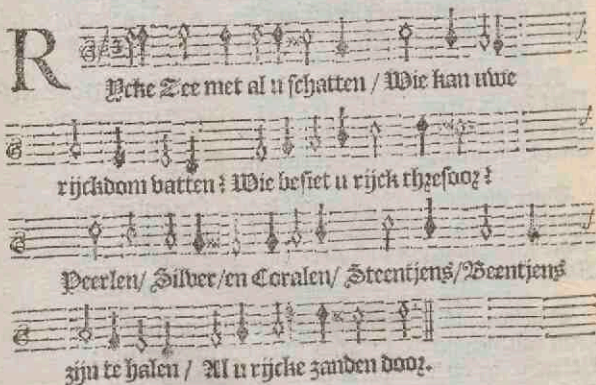 RYcke Zee met al u schatten / Wie kan uwe
rijckdom vatten? Wie besiet u rijck thresoor?
Peerlen/ Silver/en Coralen/ Steentjens/Beentjens
zijn te halen / Al u rijcke zanden door.